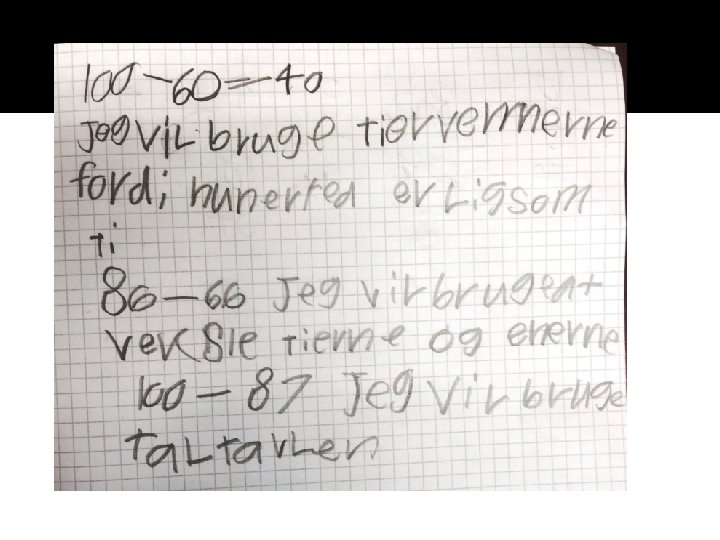 100-60=40
Jeg vil bruge tiervennerne
fordi hunerred er Ligsom
ti
86-66 Jeg vil brugeat
veksle tierne og enerne
100-87 Jeg vil bruge
TaLtavLen